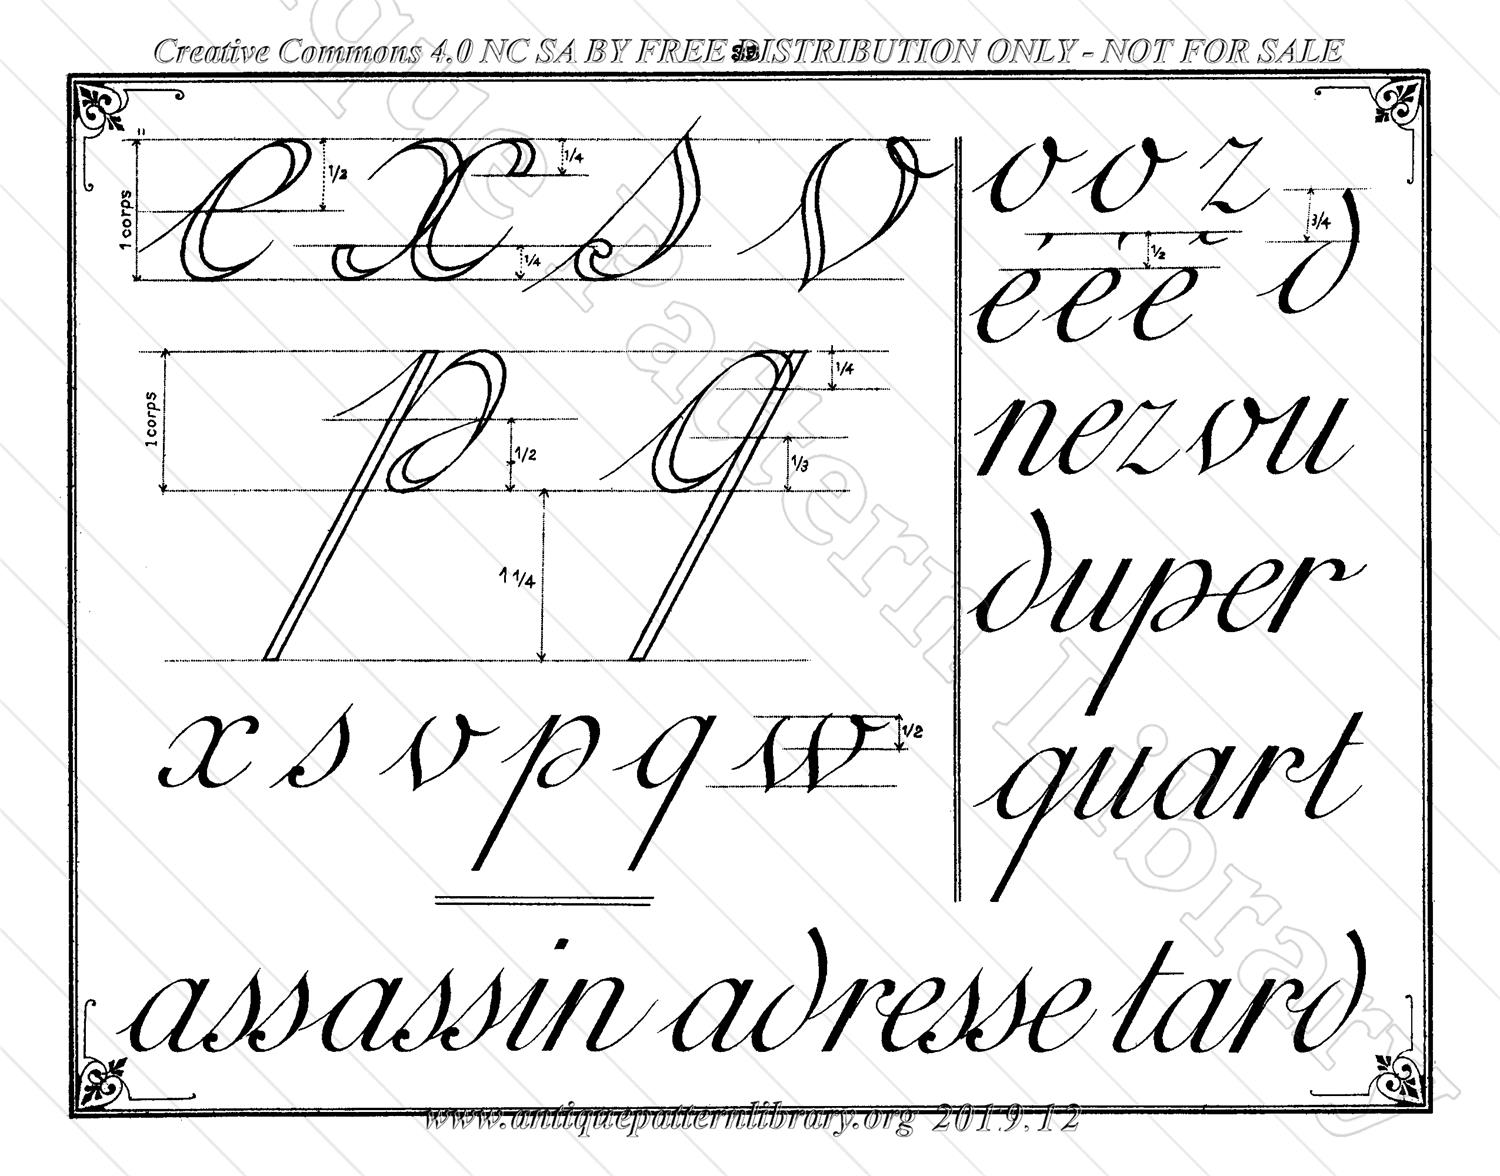 Creative Commons 4.0 NC SA BY FREE DISTRIBUTION ONLY - NOT FOR SALE
e x s v
1 corps
1/2
1/4
1/4
p q
1 corps
1/2
1/4
1/3
1 1/4
x s v p q w
1/2
o o z
3/4
é è ê d
1/2
nez vu
duper
quart
assassin adresse tard
Antique Pattern Library
www.antiquepatternlibrary.org 2019.12